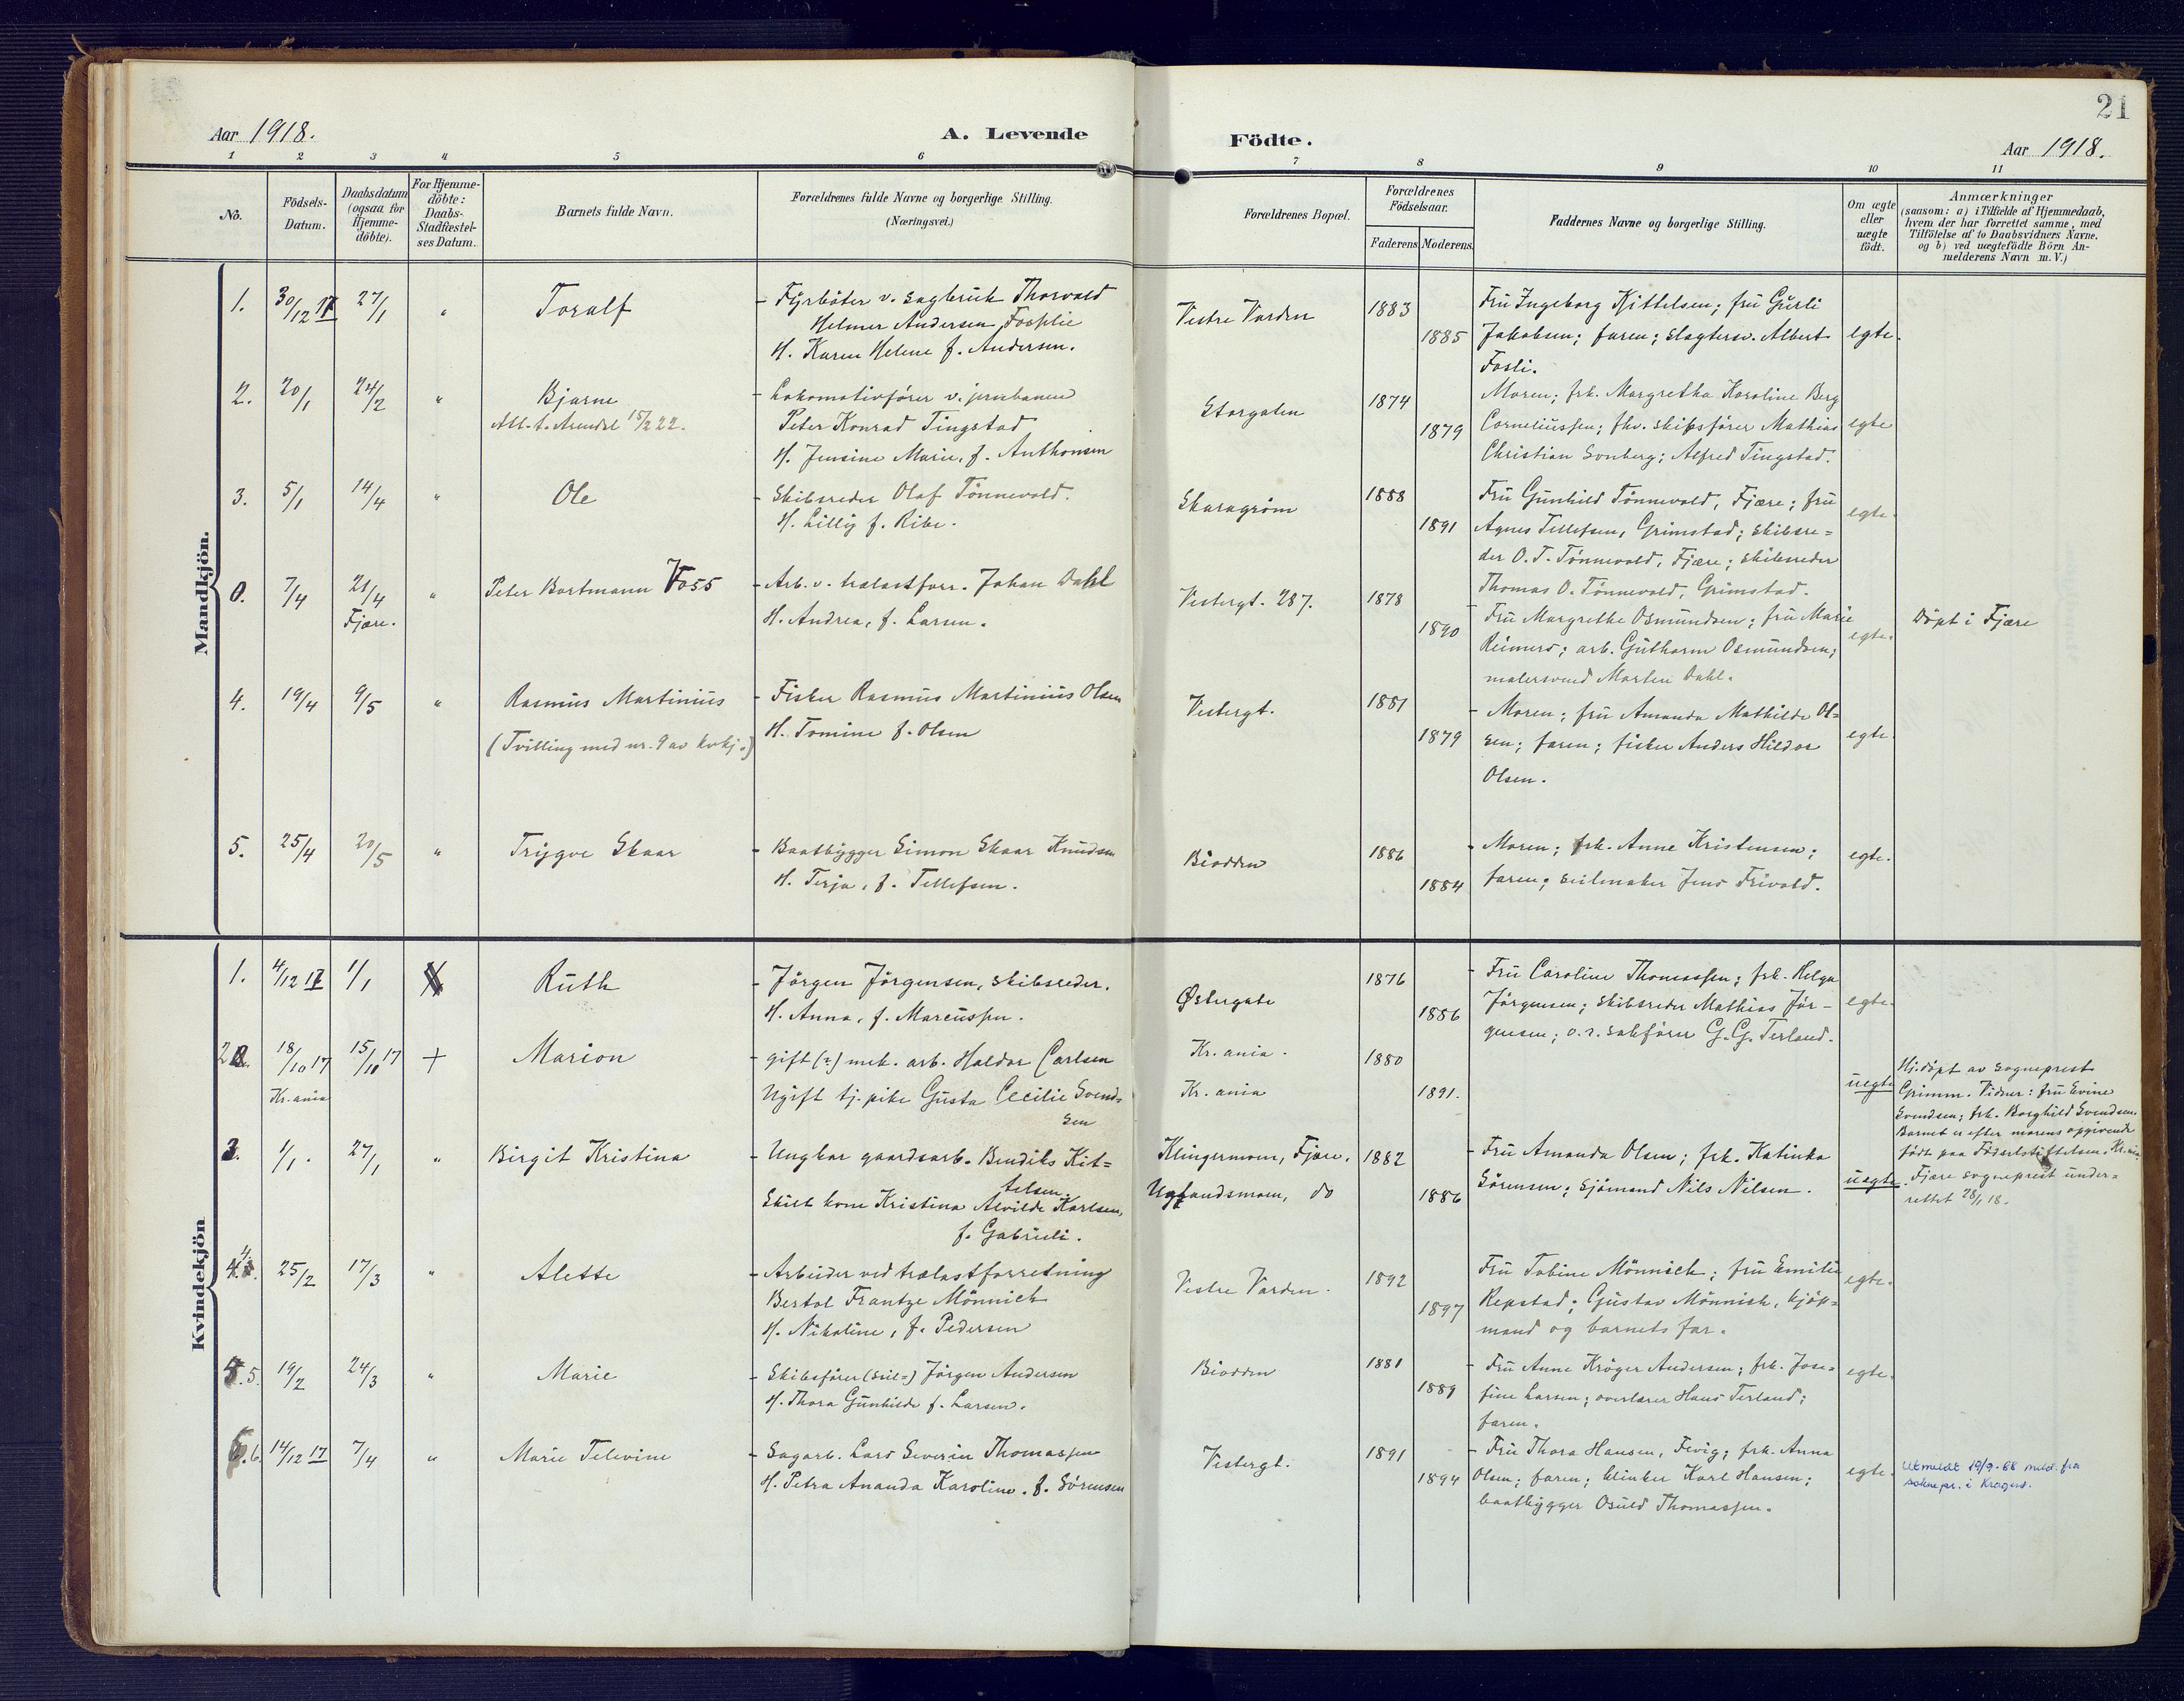 21
Aar 1918.
A. Levende
Födte.
Aar 1918.
1 2 3 4 5 6 7 8 9 10 11
No.
Födsels-
Datum.
Daabsdatum
(ogsaa for
Hjemme-
döbte).
For Hjemme-
döbte:
Daabs-
Stadfæstel-
ses Datum.
Barnets fulde Navn.
Forældrenes fulde Navne og borgerlige Stilling.
(Næringsvei.)
Forældrenes Bopæl.
Forældrenes
Födselsaar.
Faderens Moderens
Faddernes Navne og borgerlige Stilling.
Om ægte
eller
uægte
födt.
Anmærkninger
(saasom: a) i Tilfælde af Hjemmedaab,
hvem der har forrettet samme, med
Tilföielse af to Daabsvidners Navne.
og b) ved uægtefödte Börn An-
melderens Navn m. V.)
Mandkjön.
1. 30/12 17 27/1 " Toralf
- Fyrböter v. sagbruk Thorvald
Helmer Andersen, Fossplie
H. Karen Helene f. Andersen.
Vestre Varden 1883
1885
Fru Ingeborg Kittelsen; fru Gurli
Jakobsen; faren; slagtersv. Albert
Fosli.
egte.
2. 20/1 24/2 " Bjarne
Att. t. Arendal 15/2 22.
- Lokomotivförer v. jernbanen
Peter Konrad Tingstad
H. Jensine Marie, f. Anthonsen
Storgaten 1874
1879
Moren; frk. Margretha Karoline Berg
Corneliussen; fhv. skibsförer Mathias
Christian Sonberg; Alfred Tingstad.
egte
3. 5/1 14/4 " Ole
- Skibsreder Olaf Tönnevold.
H. Lilly f. Ribe.
Skaragrøm 1888
1891
Fru Gunhild Tönnevold, Fjære; fru
Agnes Tellefsen, Grimstad; skibsre=
der O. T. Tönnevold, Fjære; skibsreder
Thomas O. Tönnevold, Grimstad.
egte.
0. 7/4 21/4 " Peter Bortmann Voss
Fjære.
- Arb. v. trælastforr. Johan Dahl
H. Andrea, f. Larsen.
Vestergt. 287. 1878
1890
- Fru Margrethe Osmundsen; fru Marie
Reimers; arb. Guthorm Osmundsen;
malersvend Morten Dahl.
egte.
Döpt i Fjære
4. 19/4 9/5 " Rasmus Martinius
(Tvilling med nr. 9 av kvkj.)
- Fisker Rasmus Martinius Olsen
H. Tomine f. Olsen
Vestergt. 1881
1879
- Moren; fru Amanda Mathilde Ol=
sen; faren; fisker Anders Hildor
Olsen.
egte.
5. 25/4 20/5 " Trygve Skaar
- Baatbygger Simon Skaar Knudsen
H. Terja, f. Tellefsen.
Biodden 1886
1884
- Moren; frk. Anne Kristensen;
faren; seilmaker Jens Frivold.
egte.
Kvindekjön
1. 4/12 17 1/1 Ruth
- Jörgen Jörgensen, skibsreder.
H. Anna, f. Marcussen.
Østergate 1876
1886
- Fru Caroline Thomassen; frk. Helga
Jörgensen; skibsreder Mathias Jör-
gensen; o. r. sakförer G. G. Terland.
egte.
2. 18/10 17 15/10 17 + Marion
Kr.ania
- gift (?) mek. arb. Haldor Carlsen
Ugift tj.pike Gusta Cecilie Svend=
sen
Kr.ania. 1880
Kr.ania 1891.
uegte
Hj.döpt av sogneprest
Grimm. Vidner: fru Evine
Svendsen; frk. Borghild Svendsen.
Barnet er efter morens opgivende
födt paa Födselsstiftelsen, Kr.ania
3. 1/1. 27/1 " Birgit Kristina
- Ungkar gaardsarb. Bendiks Kit=
telsen.
Skilt kone Kristina Alvilde Karlsen,
f. Gabrieli.
Klingermoen, Fjære. 1882
Uglandsmoen, do 1886
- Fru Amanda Olsen; frk. Katinka
Sörensen; sjömand Nils Nilsen.
uegte
. Fjære sogneprest under=
rettet 28/1 18.
4. 25/2 17/3 " Alette
- Arbeider ved trælastforretning
Bertol Frantze Mönnich
H. Nikoline, f. Pedersen
Vestre Varden. 1892
1897
Fru Tobine Mönnich; fru Emilie
Repstad; Gustav Mönnich, kjöp=
mand og barnets far.
egte.
5. 19/2 24/3 " Marie
- Skibsförer (seil=) Jörgen Andersen
H. Thora Gunhilde f. Larsen.
Biodden 1881
1889
- Fru Anne Kröger Andersen; frk. Jose=
fine Larsen; overlærer Hans Terland;
faren.
egte.
6. 14/12 17 7/4 " Marie Televine
- Sagarb. Lars Severin Thomassen
H. Petra Ananda Karoline, f. Sörensen
Vestergt. 1891
1894
- Fru Thora Hansen, Fevig; frk. Anna
Olsen; faren; blinker Karl Hansen;
baatbygger Osuld Thomassen.
egte.
Utmeldt 19/9-68 meld. fra
soknepr. i Kragerø.